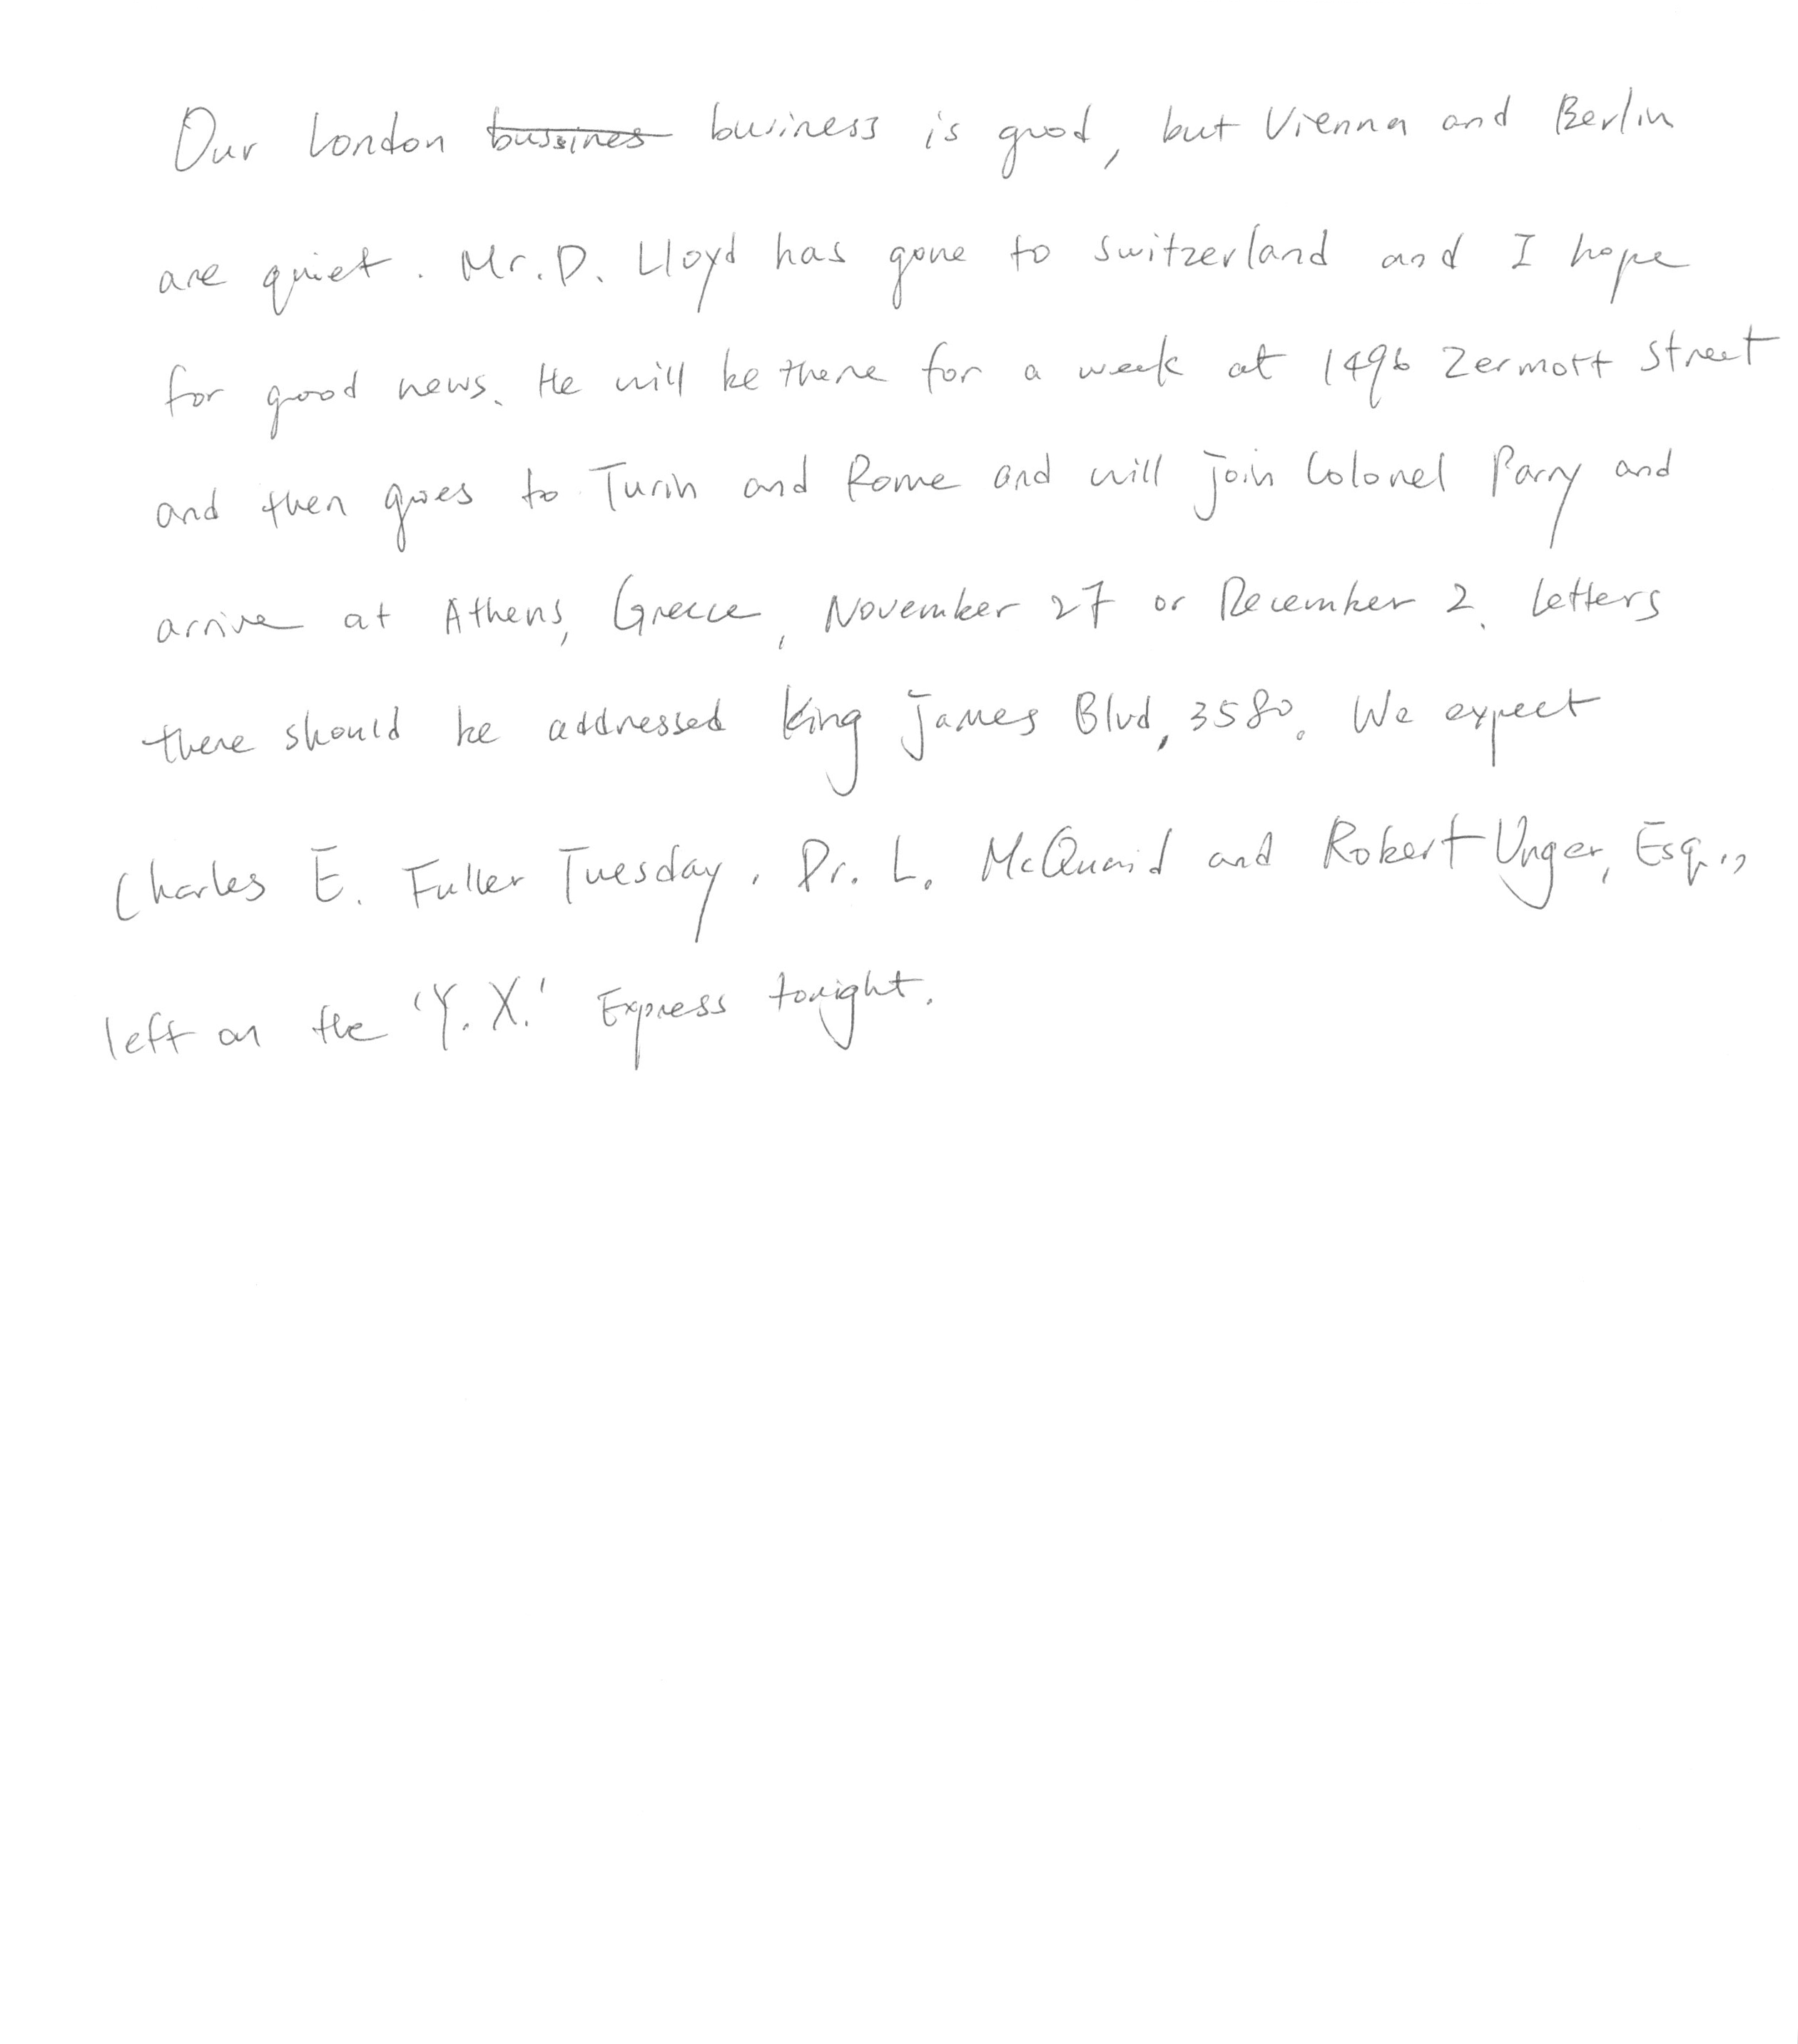 Our London bussines business is good, but Vienna and Berlin
are quiet. Mr. D. Lloyd has gone to Switzerland and I hope
for good news. He will be there for a week at 1496 Zermott Street
and then goes to Turin and Rome and will join Colonel Parry and
arrive at Athens, Greece, November 27 or December 2. Letters
there should be addressed King James Blvd, 3580. We expect
Charles E. Fuller Tuesday. Dr. L. McQuaid and Robert Unger, Esq.,
left on the 'Y. X.' Express tonight.